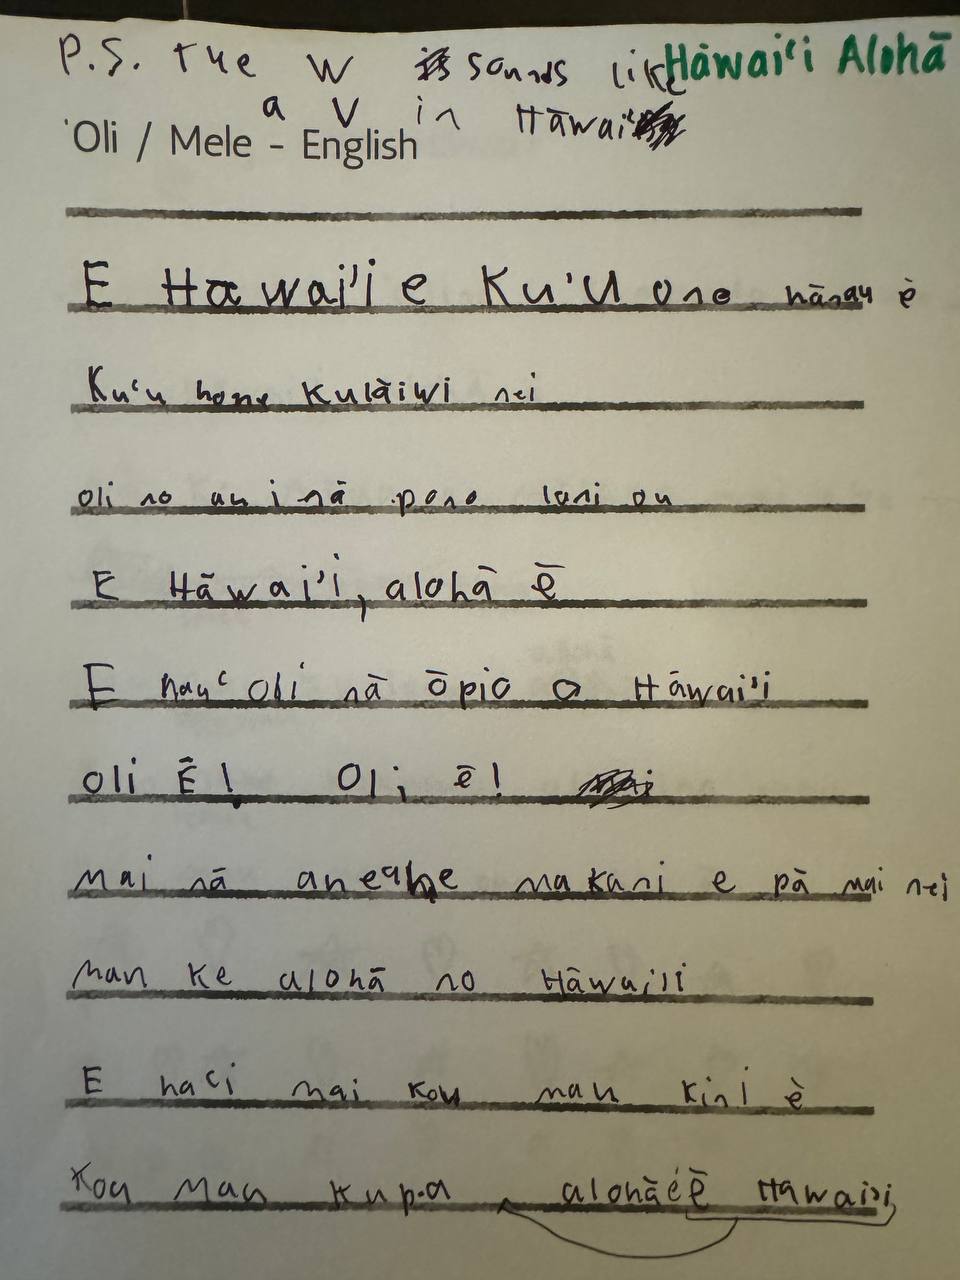 P.S. the w sounds like Hāwai'i Alohā
a v in Hāwai'i
'Oli / Mele - English
E Hawai'i e Ku'u one hānau è
Ku'u home Kulāiwi nei
oli no au i nā pono lani ou
E Hāwai'i, alohā ē
E hau'oli nā ōpio o Hāwai'i
oli Ē! Oli ē!
mai nā aneahe makani e pā mai nei
mau ke alohā no Hāwai'i
E ha'i mai kou mau kini è
Kou mau kupa, alohā ē Hāwai'i